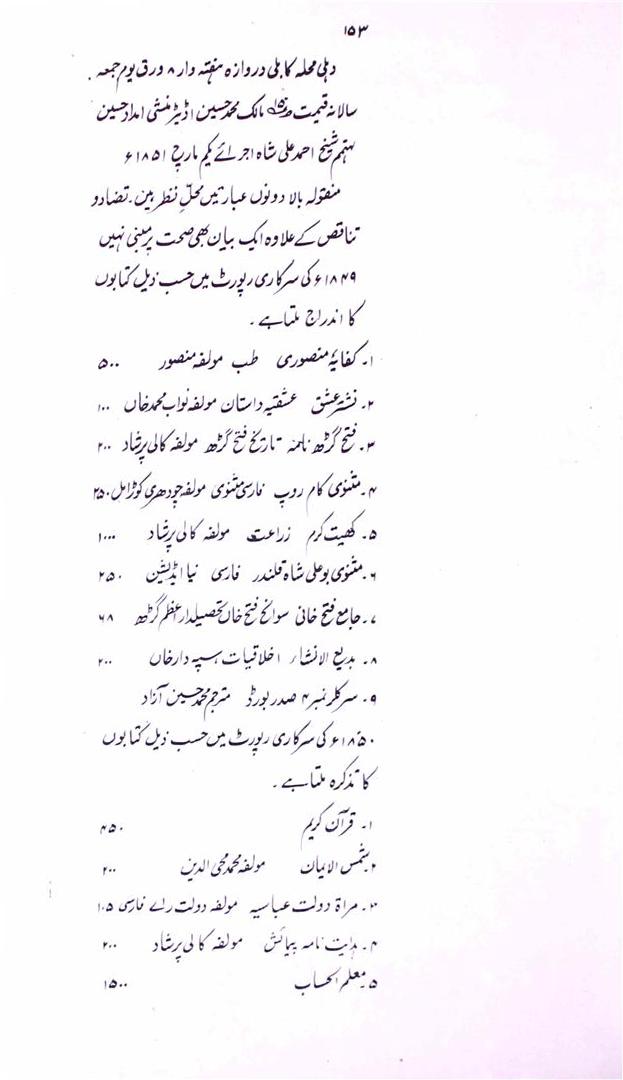 ۱۵۳
دہلی محلہ کابلی دروازہ ہفتہ وار ۸ ورق یوم جمعہ۔
سالانہ قیمت مالک محمد حسین اڈیٹر منشی امداد حسین
مہتمم شیخ احمد علی شاہ اجرائے یکم مارچ ۱۸۵۱ء
منقولہ بالا دونوں عبارتیں محلِ نظر ہیں۔ تضاد و
تناقص کے علاوہ ایک بیان بھی صحت پر مبنی نہیں
۱۸۴۹ء کی سرکاری رپورٹ میں حسب ذیل کتابوں
کا اندراج ملتا ہے۔
۱۔ کفایۂ منصوری طب مولفہ منصور ۵۰۰
۲۔ نشترِ عشق عشقیہ داستان مولفہ نواب محمد خاں ۱۰۰
۳۔ فتح گڑھ نامہ تاریخ فتح گڑھ مولفہ کالی پرشاد ۲۰۰
۴۔ مثنوی کام روپ فارسی مثنوی مولفہ چودھری کوڑامل ۲۵۰
۵۔ کھیت کرم زراعت مولفہ کالی پرشاد ۱۰۰۰
۶۔ مثنوی بو علی شاہ قلندر فارسی نیا اڈیشن ۲۵۰
۷۔ جامع فتح خانی سوانح فتح خاں تحصیلدار اعظم گڑھ ۶۸
۸۔ بدیع الانشاء اخلاقیات سپہ دار خاں ۲۰۰
۹۔ سرکلر نمبر ۴ صدر بورڈ مترجم محمد حسین آزاد
۱۸۵۰ء کی سرکاری رپورٹ میں حسب ذیل کتابوں
کا تذکرہ ملتا ہے۔
۱۔ قرآن کریم ۴۵۰
۲۔ شمس الایمان مولفہ محمد محی الدین ۲۰۰
۳۔ مراۃ دولت عباسیہ مولفہ دولت رائے فارسی ۱۰۵
۴۔ ہدایت نامہ پیمائش مولفہ کالی پرشاد ۲۰۰
۵۔ معلم الحساب ۱۵۰۰